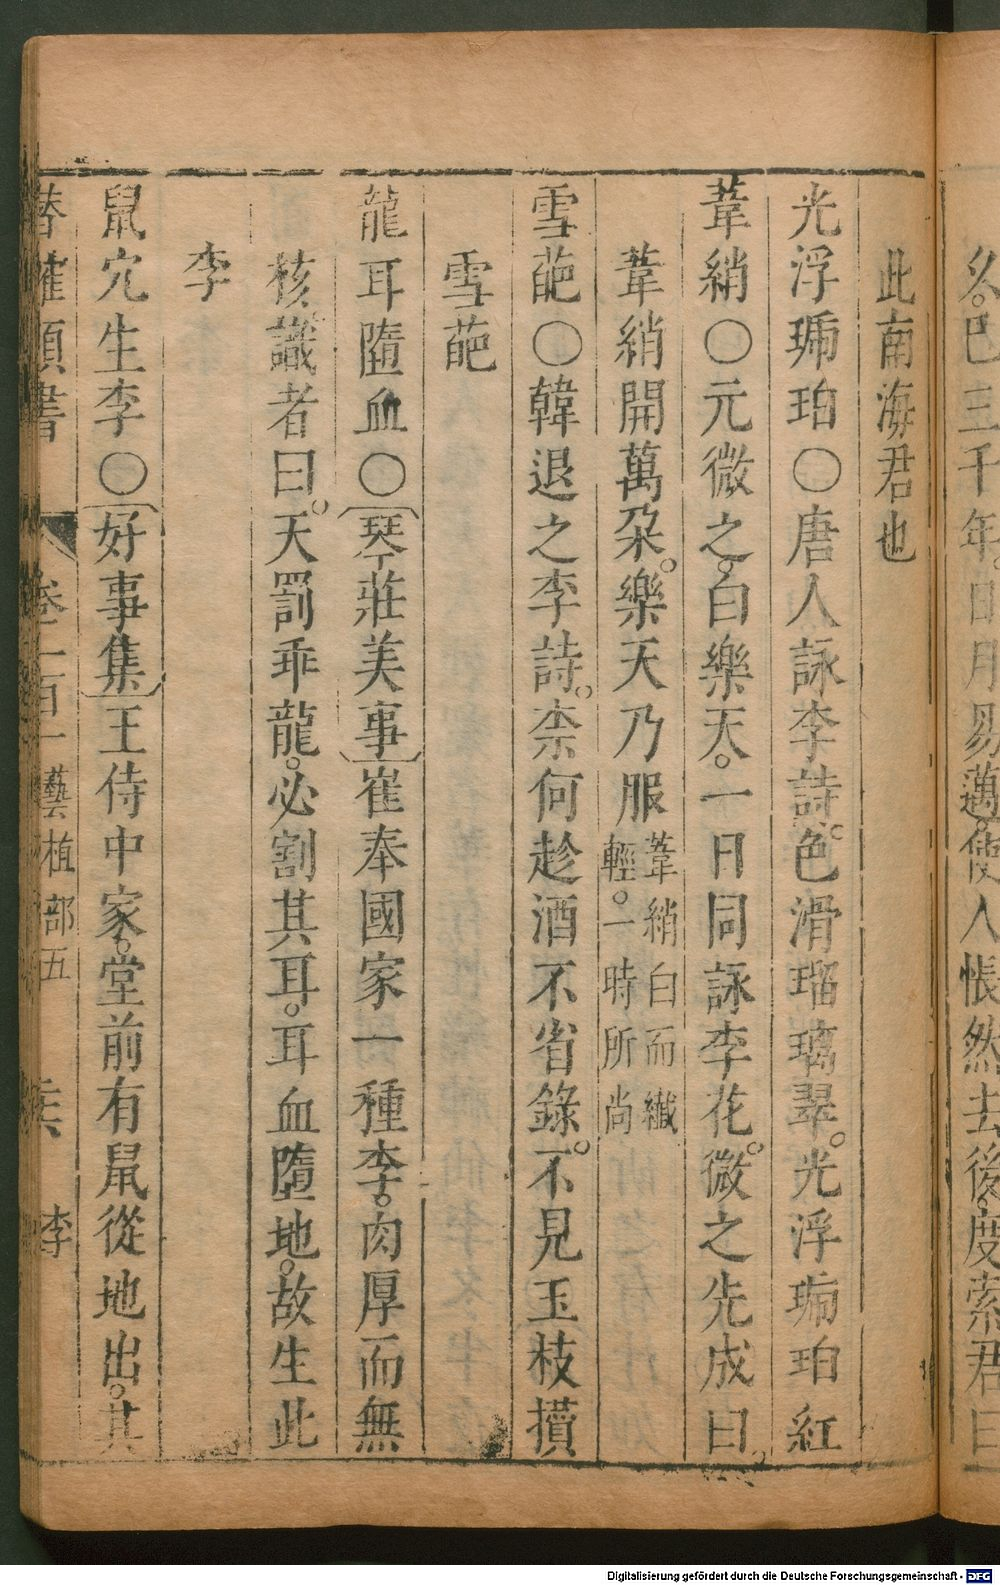 久巴三千年日月易邁使人悵然去後度索君曰
此南海君也
光浮琥珀〇唐人詠李詩色滑瑠璃翠光浮琥珀紅
葦綃〇元微之白樂天一日同詠李花微之先成曰
葦綃開萬朶樂天乃服葦綃白而纖輕一時所尚
雪葩〇韓退之李詩柰何趁酒不省錄不見玉枝攢
雪葩
龍耳墮血〇琴莊美事崔奉國家一種李肉厚而無
核識者曰天罰乖龍必割其耳耳血墮地故生此
李
鼠穴生李〇好事集王侍中家堂前有鼠從地出其
類書 卷二百一 藝植部五 李
Digitalisierung gefördert durch die Deutsche Forschungsgemeinschaft - DFG